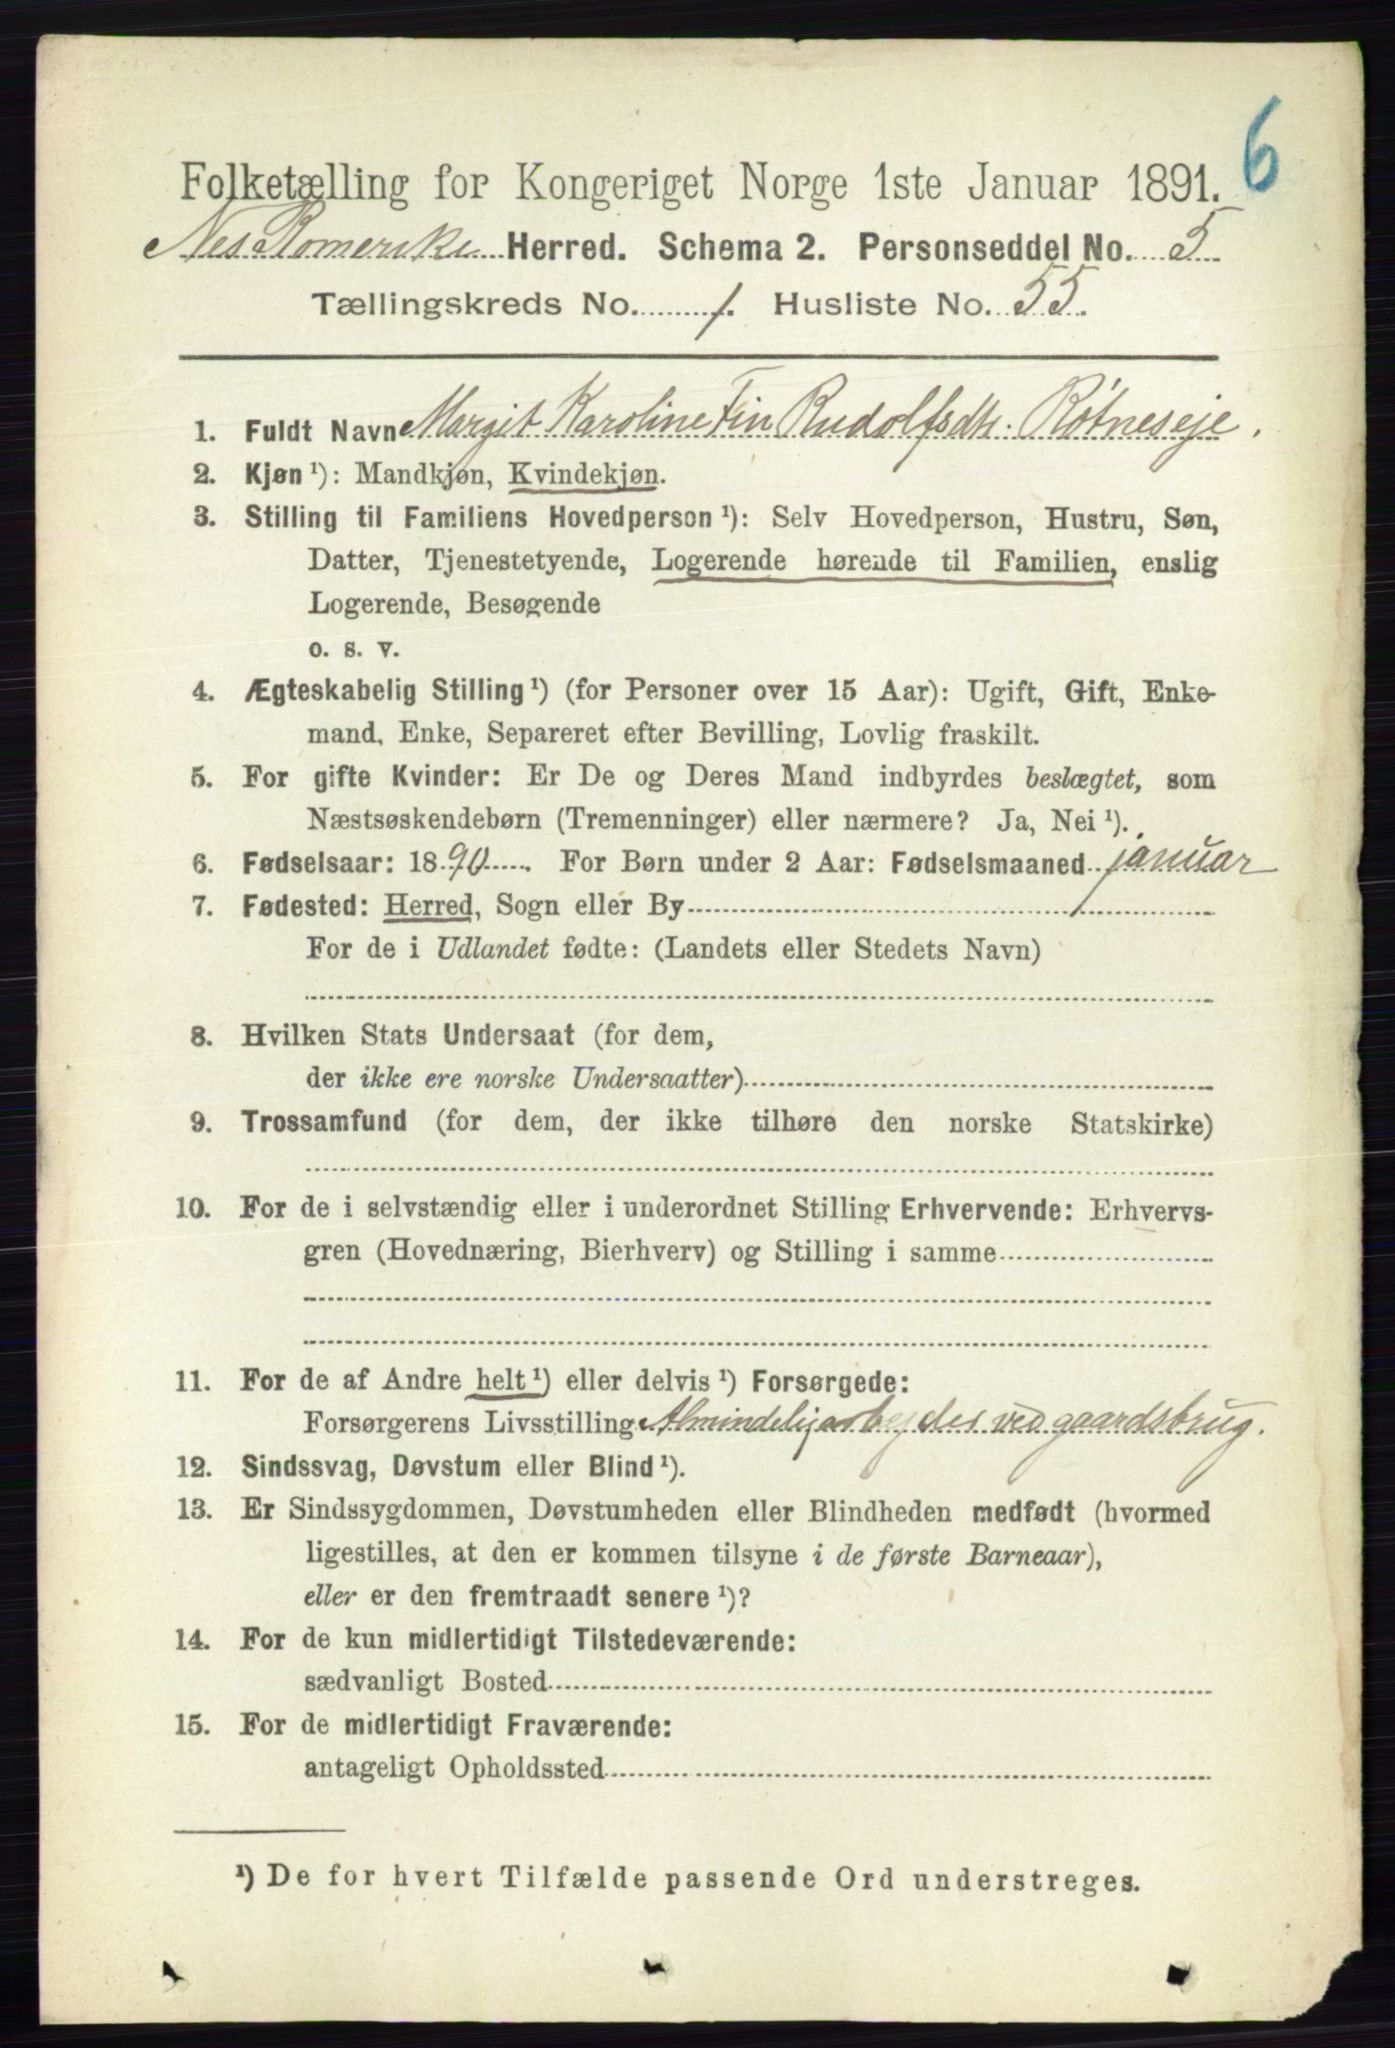 6
Folketælling for Kongeriget Norge 1ste Januar 1891.
Nes Romerike Herred. Schema 2. Personseddel No. 5
Tællingskreds No. 1. Husliste No. 55.
1. Fuldt Navn Margit Karoline Fin Rudolfsdtr. Rötneseje.
2. Kjøn ¹): Mandkjøn, Kvindekjøn.
3. Stilling til Familiens Hovedperson ¹): Selv Hovedperson, Hustru, Søn,
Datter, Tjenestetyende, Logerende hørende til Familien, enslig
Logerende, Besøgende
o. s. v.
4. Ægteskabelig Stilling ¹) (for Personer over 15 Aar): Ugift, Gift, Enke-
mand, Enke, Separeret efter Bevilling, Lovlig fraskilt.
5. For gifte Kvinder: Er De og Deres Mand indbyrdes beslægtet, som
Næstsøskendebørn (Tremenninger) eller nærmere? Ja, Nei ¹).
6. Fødselsaar: 1890. For Børn under 2 Aar: Fødselsmaaned januar
7. Fødested: Herred, Sogn eller By
For de i Udlandet fødte: (Landets eller Stedets Navn)
8. Hvilken Stats Undersaat (for dem,
der ikke ere norske Undersaatter)
9. Trossamfund (for dem, der ikke tilhøre den norske Statskirke)
10. For de i selvstændig eller i underordnet Stilling Erhvervende: Erhvervs-
gren (Hovednæring, Bierhverv) og Stilling i samme
11. For de af Andre helt ¹) eller delvis ¹) Forsørgede:
Forsørgerens Livsstilling Almindeligarbejder ved gaardsbrug.
12. Sindssvag, Døvstum eller Blind ¹).
13. Er Sindssygdommen, Døvstumheden eller Blindheden medfødt (hvormed
ligestilles, at den er kommen tilsyne i de første Barneaar),
eller er den fremtraadt senere ¹)?
14. For de kun midlertidigt Tilstedeværende:
sædvanligt Bosted
15. For de midlertidigt Fraværende:
antageligt Opholdssted
¹) De for hvert Tilfælde passende Ord understreges.